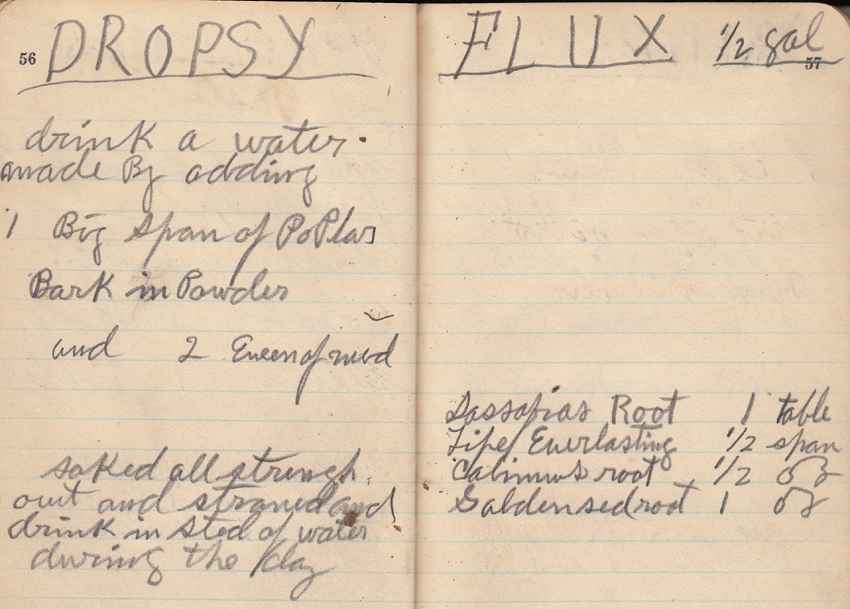 56
DROPSY
drink a water.
made By adding
1 Big Span of PoPlar
Bark in Powder
and 2
soked all strength
out and straned and
drink in sted of water
during the day
FLUX 1/2 gal
57
Sassafras Root 1 table
Life Everlasting 1/2 span
Calimus root 1/2 oz
Goldensedroot 1 oz